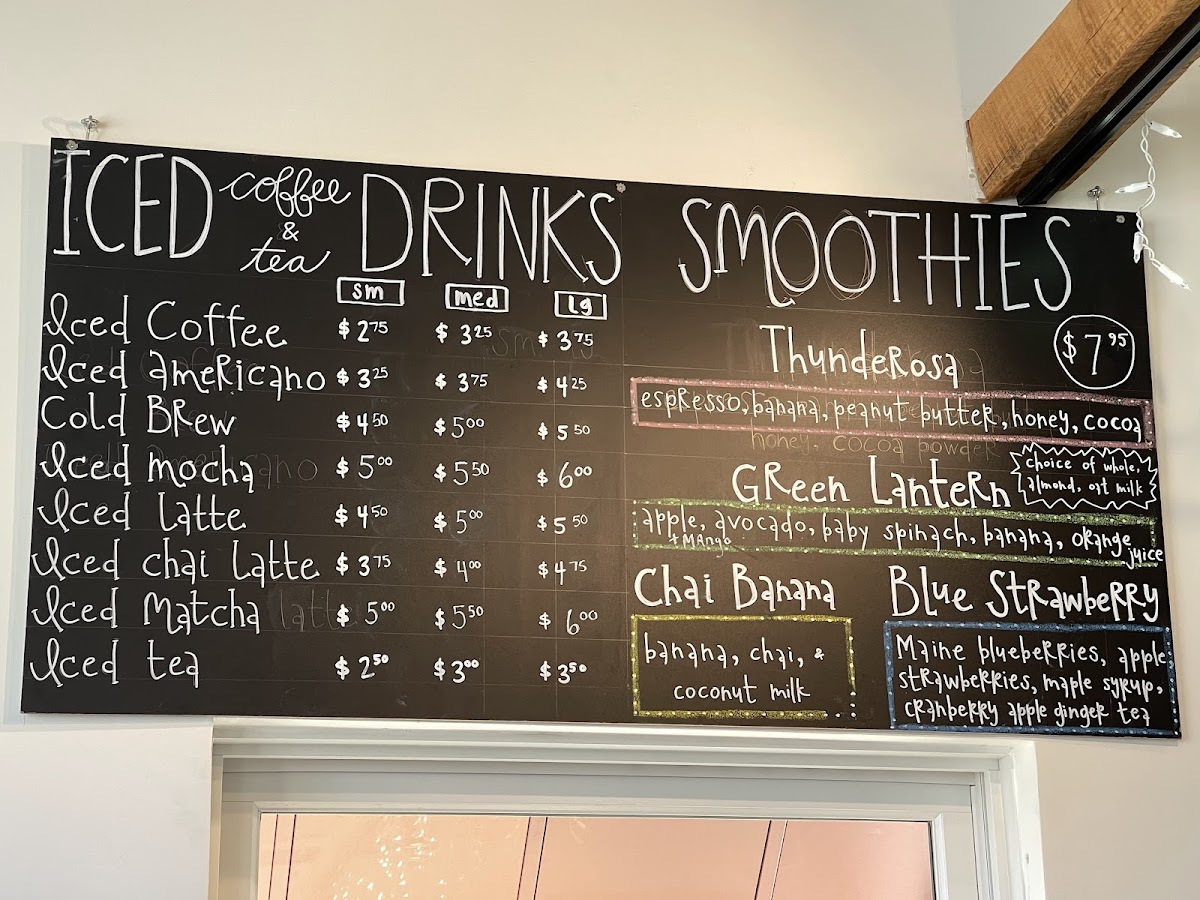 ICED coffee & tea DRINKS
sm med lg
Iced Coffee $2.75 $3.25 $3.75
Iced americano $3.25 $3.75 $4.25
Cold Brew $4.50 $5.00 $5.50
Iced mocha $5.00 $5.50 $6.00
Iced Latte $4.50 $5.00 $5.50
Iced chai Latte $3.75 $4.00 $4.75
Iced Matcha latte $5.00 $5.50 $6.00
Iced tea $2.50 $3.00 $3.50
SMOOTHIES
$7.95
ThundeRosa
espresso, banana, peanut butter, honey, cocoa
honey, cocoa powder
Green Lantern
choice of whole,
almond, oat milk
apple, avocado, baby spinach, banana, orange juice
+ Mango
Chai Banana
banana, chai, &
coconut milk
Blue Strawberry
Maine blueberries, apple,
strawberries, maple syrup,
cranberry apple ginger tea